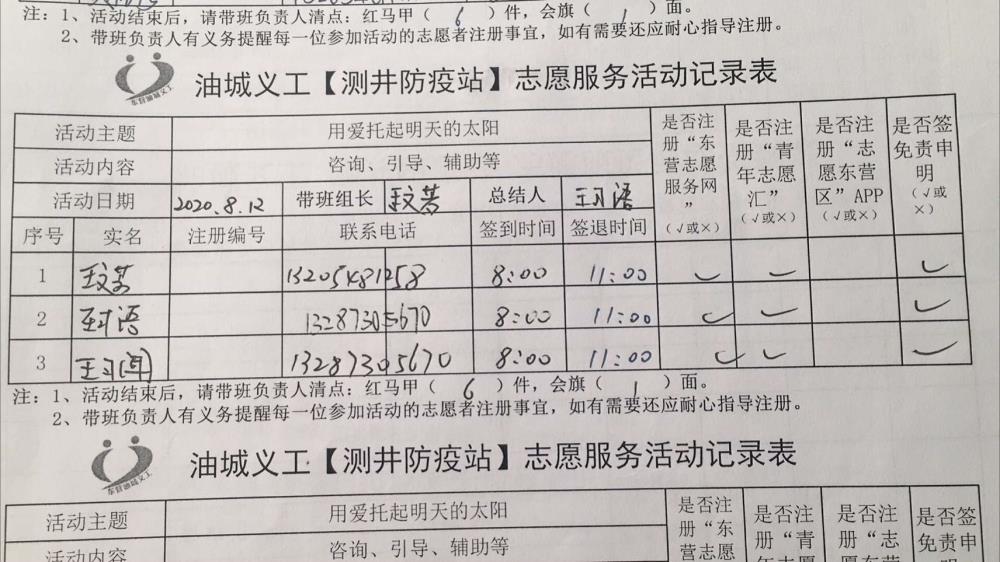 注：1、活动结束后，请带班负责人清点：红马甲（ 6 ）件，会旗（ 1 ）面。
2、带班负责人有义务提醒每一位参加活动的志愿者注册事宜，如有需要还应耐心指导注册。
油城义工【测井防疫站】志愿服务活动记录表
活动主题 用爱托起明天的太阳 是否注册“东营志愿服务网”（√或×） 是否注册“青年志愿汇”（√或×） 是否注册“志愿东营区”APP（√或×） 是否签免责申明（√或×）
活动内容 咨询、引导、辅助等
活动日期 2020.8.12 带班组长 王文芳 总结人 王习语
序号 实名 注册编号 联系电话 签到时间 签退时间
1 王文芳 13205481258 8:00 11:00 ✓ ✓ ✓
2 13287305670 8:00 11:00 ✓ ✓ ✓
3 王习 13287305670 8:00 11:00 ✓ ✓ ✓
注：1、活动结束后，请带班负责人清点：红马甲（ 6 ）件，会旗（ 1 ）面。
2、带班负责人有义务提醒每一位参加活动的志愿者注册事宜，如有需要还应耐心指导注册。
东营油城义工
油城义工【测井防疫站】志愿服务活动记录表
活动主题 用爱托起明天的太阳 是否注册“东营志愿 是否注册“青 是否注册“志 是否签免责申
活动内容 咨询、引导、辅助等